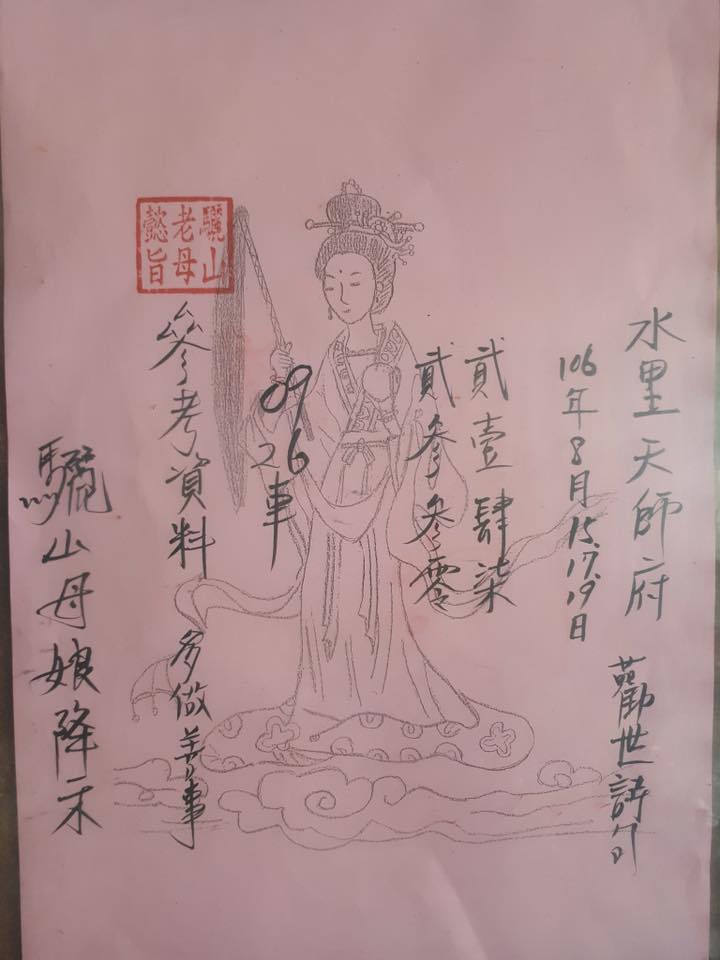 水里天師府 勸世詩句
106年8月15.17.19日
貳壹肆柒
貳參參零
09
26車
參考資料 多做善事
驪山母娘降示
驪山
老母
懿旨